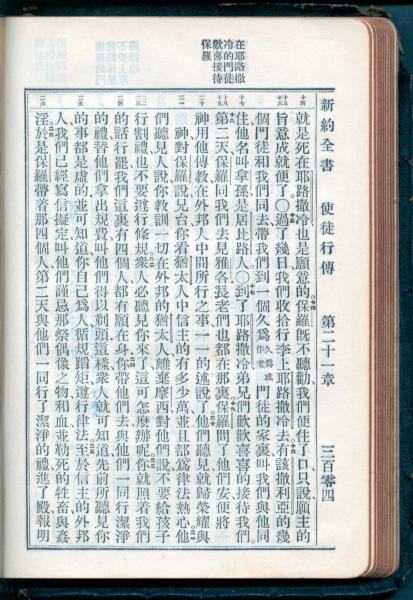 新約全書　使徒行傳　第二十一章　三百零四
在耶路撒
冷的門徒
歡喜接待
保羅
就是死在耶路撒冷也是願意的保羅旣不聽勸我們便住了口只說願主的
旨意成就便了〇過了幾日我們收拾行李上耶路撒冷去有該撒利亞的幾
個門徒和我們同去帶我們到一個久爲久爲或作老門徒的家裏叫我們與他同
住他名叫拿孫是居比路人〇到了耶路撒冷弟兄們歡歡喜喜的接待我們
第二天保羅同我們去見雅各長老們也都在那裏保羅問了他們安便將
神用他傳敎在外邦人中間所行之事一一的述說了他們聽見就歸榮耀與
神對保羅說兄台你看猶太人中信主的有多少萬並且都爲律法熱心他
們聽見人說你敎訓一切在外邦的猶太人離棄摩西對他們說不要給孩子
行割禮也不要遵行條規衆人必聽見你來了這可怎麼辦呢你就照着我們
的話行罷我們這裏有四個人都有願在身你帶他們去與他們一同行潔淨
的禮替他們拿出規費叫他們得以剃頭這樣衆人就可知道先前所聽見你
的事都是虛的並可知道你自己爲人循規蹈矩遵行律法至於信主的外邦
人我們已經寫信擬定叫他們謹忌那祭偶像之物和血並勒死的牲畜與姦
淫於是保羅帶着那四個人第二天與他們一同行了潔淨的禮進了殿報明